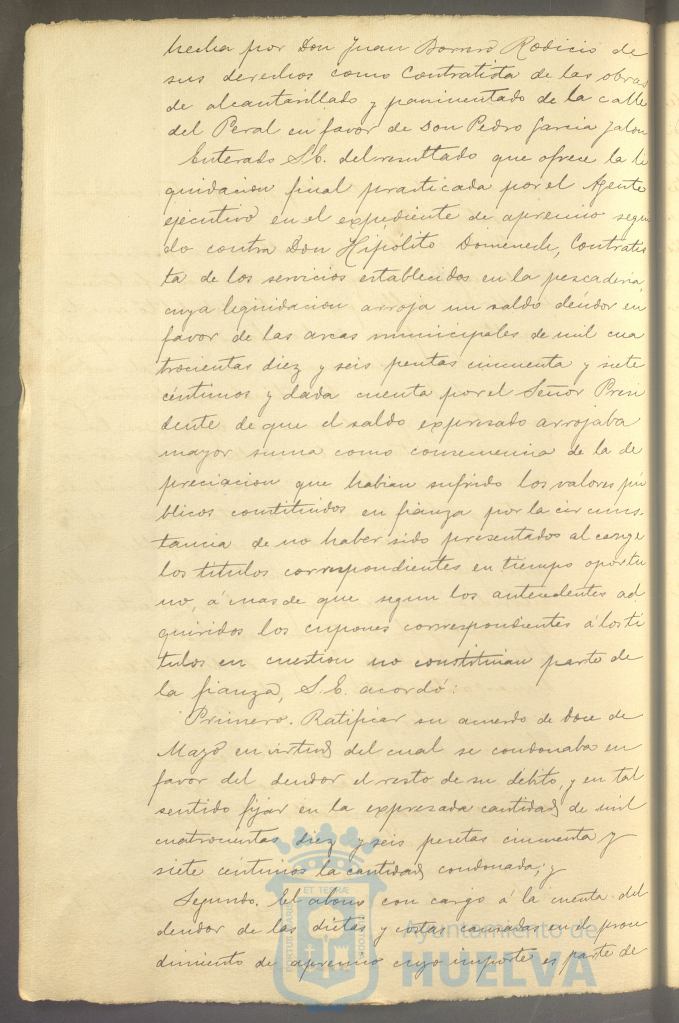 hecha por Don Juan Borrero Rodicio de
sus derechos como Contratista de las obras
de alcantarillado y pavimentado de la calle
del Peral en favor de Don Pedro Garcia Jalon
Enterado S.E. del resultado que ofrece la li
quidacion final practicada por el Agente
ejecutivo en el expediente de apremio segui
do contra Don Hipólito Domenech, Contratis
ta de los servicios establecidos en la pescaderia,
cuya liquidacion arroja un saldo deudor en
favor de las arcas municipales de mil cua
trocientas diez y seis pesetas cincuenta y siete
céntimos y dada cuenta por el Señor Presi
dente de que el saldo expresado arrojaba
mayor suma como consecuencia de la de
preciacion que habian sufrido los valores pú
blicos constituidos en fianza por la circuns-
tancia de no haber sido presentados al cange
los titulos correspondientes en tiempo oportu
no, á mas de que segun los antecedentes ad
quiridos los cupones correspondientes á los ti
tulos en cuestion no constituian parte de
la fianza, S.E. acordó:
Primero. Ratificar su acuerdo de doce de
Mayo en virtud del cual se condonaba en
favor del deudor el resto de su débito, y en tal
sentido fijar en la expresada cantidad de mil
cuatrocientas diez y seis pesetas cincuenta y
siete centimos la cantidad condonada; y
Segundo. El abono con cargo á la cuenta del
deudor de las dietas y costas causadas en el proce
dimiento de apremio cuyo importe es parte de
Ayuntamiento de
HUELVA